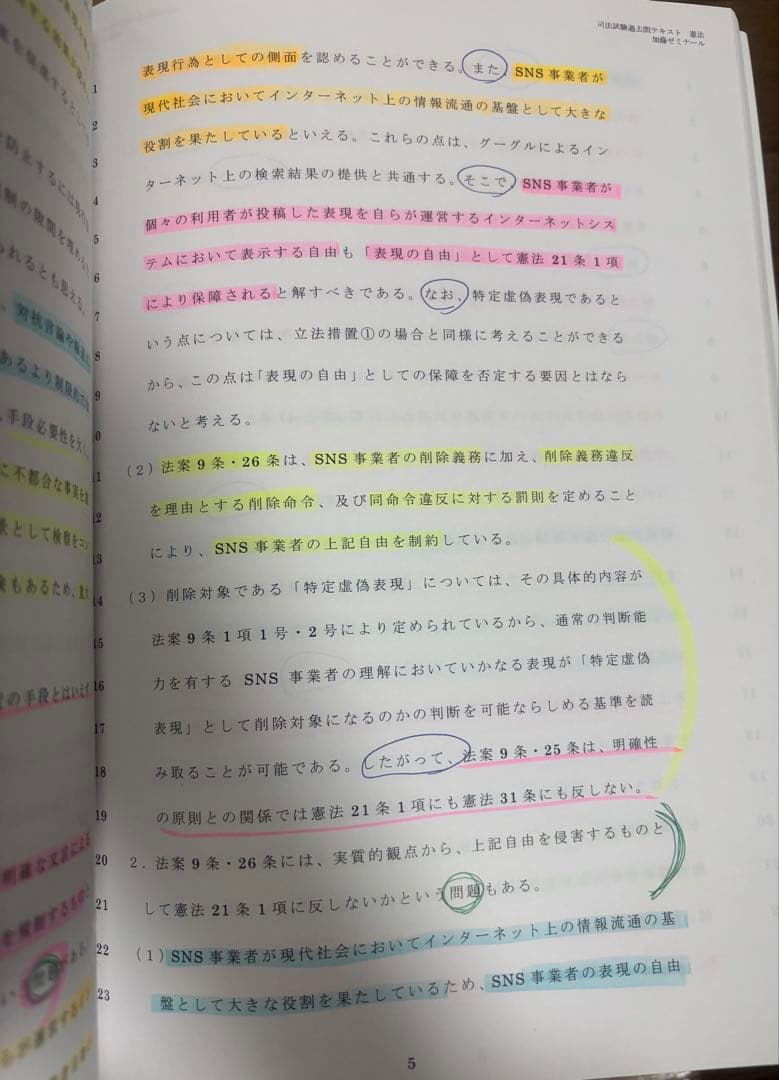 司法試験過去問テキスト 憲法
加藤ゼミナール
表現行為としての側面を認めることができる。また、SNS事業者が
1
現代社会においてインターネット上の情報流通の基盤として大きな
2
役割を果たしているといえる。これらの点は、グーグルによるイン
3
ターネット上の検索結果の提供と共通する。そこで、SNS事業者が
4
個々の利用者が投稿した表現を自らが運営するインターネットシス
5
テムにおいて表示する自由も「表現の自由」として憲法21条1項
6
により保障されると解すべきである。なお、特定虚偽表現であると
7
いう点については、立法措置①の場合と同様に考えることができる
8
から、この点は「表現の自由」としての保障を否定する要因とはなら
9
ないと考える。
0
(2)法案9条・26条は、SNS事業者の削除義務に加え、削除義務違反
11
を理由とする削除命令、及び同命令違反に対する罰則を定めること
12
により、SNS事業者の上記自由を制約している。
13
(3)削除対象である「特定虚偽表現」については、その具体的内容が
14
法案9条1項1号・2号により定められているから、通常の判断能
15
力を有する SNS 事業者の理解においていかなる表現が「特定虚偽
16
表現」として削除対象になるのかの判断を可能ならしめる基準を読
17
み取ることが可能である。したがって、法案9条・25条は、明確性
18
の原則との関係では憲法21条1項にも憲法31条にも反しない。
19
2.法案9条・26条には、実質的観点から、上記自由を侵害するものと
20
して憲法21条1項に反しないかという問題もある。
21
(1)SNS事業者が現代社会においてインターネット上の情報流通の基
22
盤として大きな役割を果たしているため、SNS事業者の表現の自由
23
5
対抗言論や
あるより制限的で
手段必要性を欠く
に不都合な事実を
として検察をコン
もあるため、重大
の手段とはいえず
明確な文言による
を規制するものと